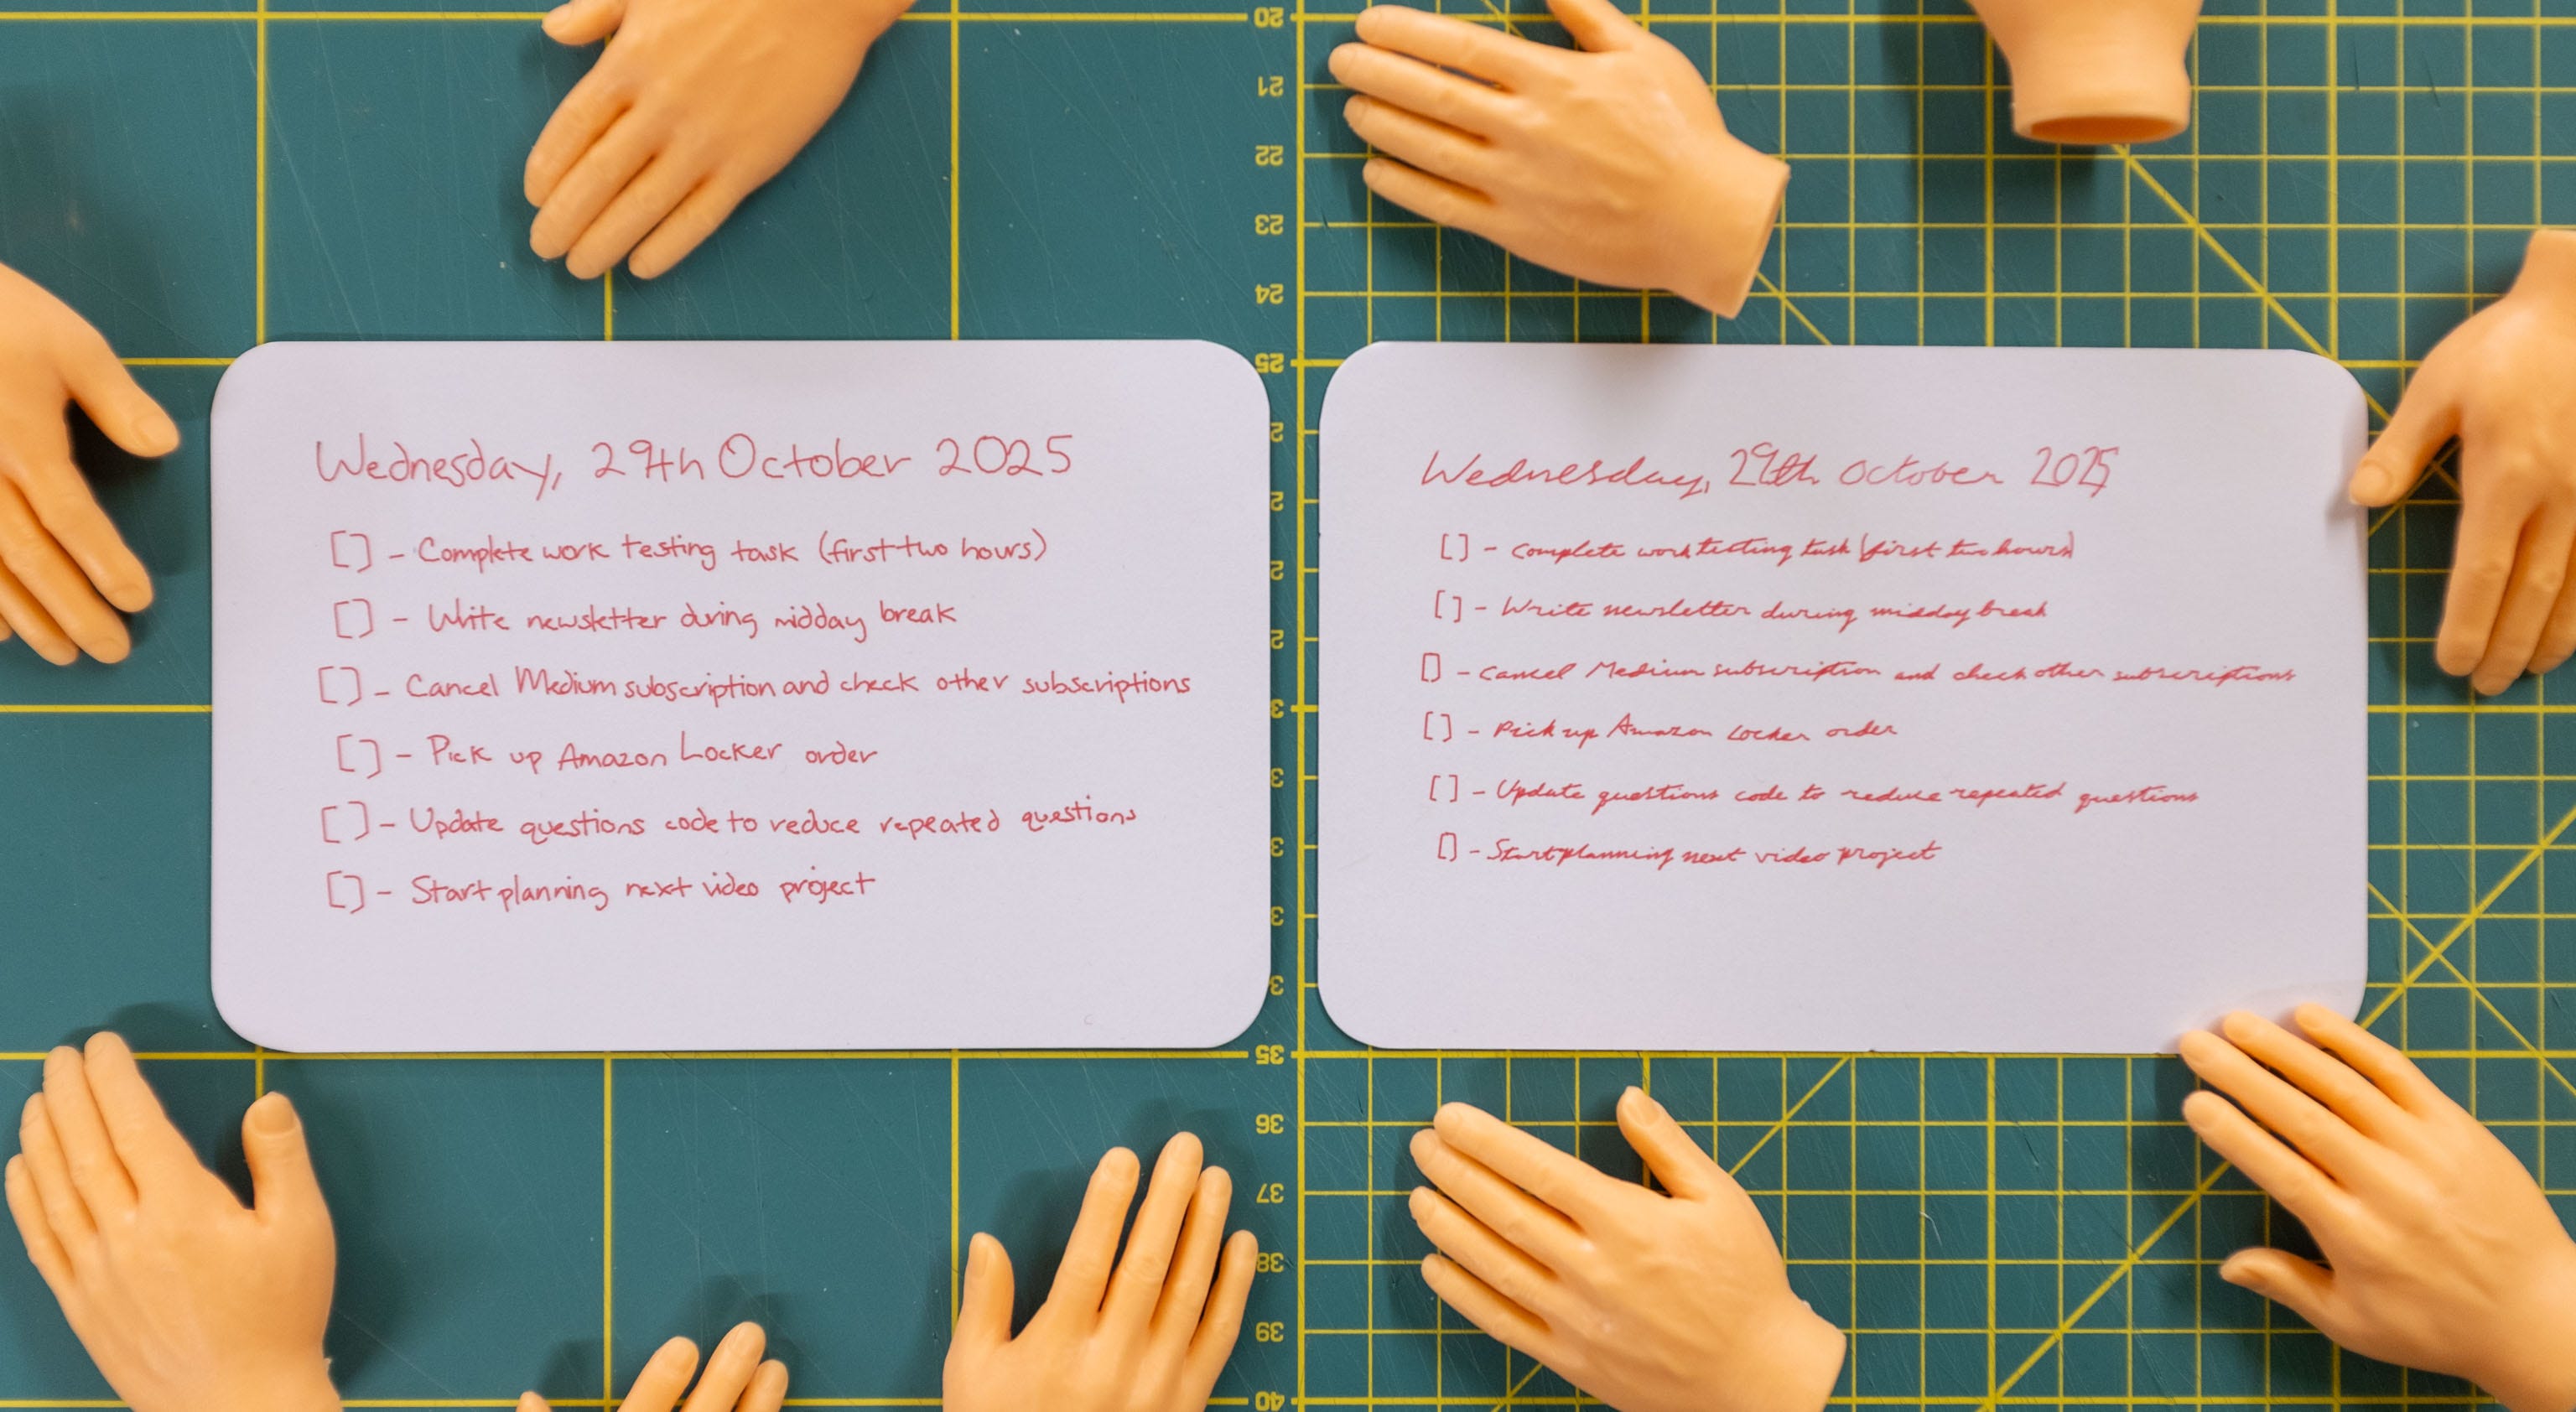 Wednesday, 29th October 2025
[ ] - Complete work testing task (first two hours)
[ ] - Write newsletter during midday break
[ ] - Cancel Medium subscription and check other subscriptions
[ ] - Pick up Amazon Locker order
[ ] - Update questions code to reduce repeated questions
[ ] - Start planning next video project
Wednesday, 29th October 2025
[ ] - Complete work testing task (first two hours)
[ ] - Write newsletter during midday break
[ ] - Cancel Medium subscription and check other subscriptions
[ ] - Pick up Amazon Locker order
[ ] - Update questions code to reduce repeated questions
[ ] - Start planning next video project
20
21
22
23
24
25
2
2
2
2
3
3
3
3
3
35
36
37
38
39
40